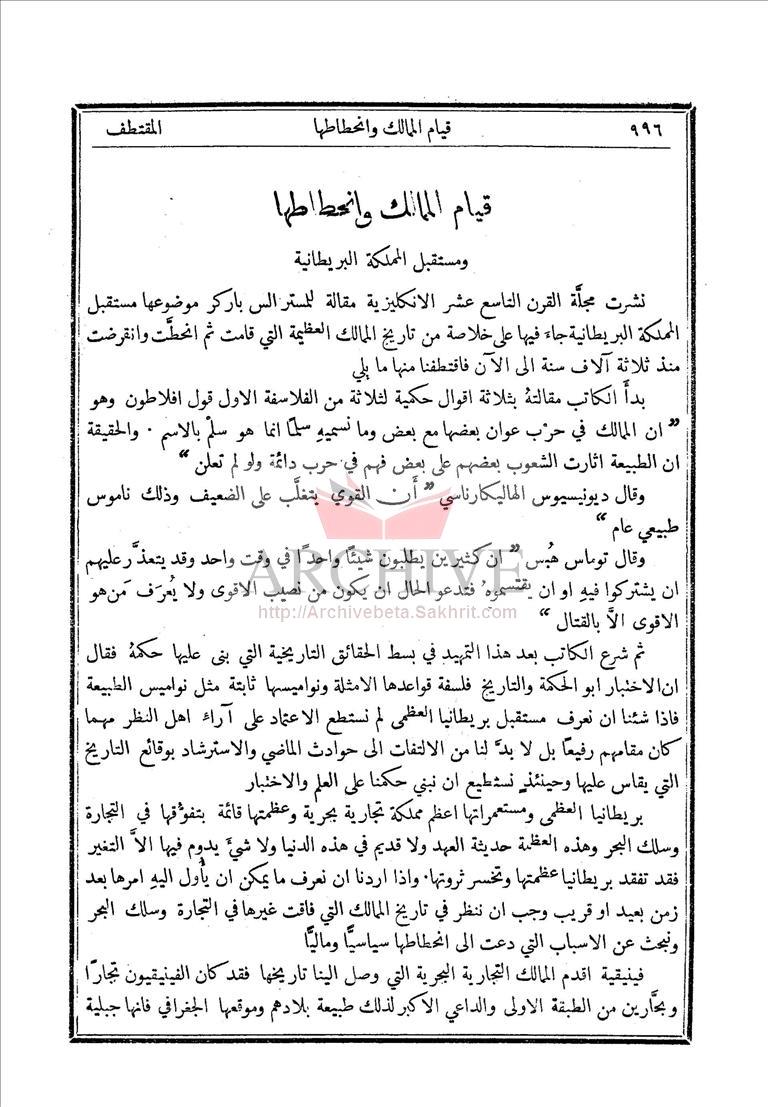 ٩٩٦ قيام المالك وانحطاطها المقتطف
قيام الممالك وانحطاطها
ومستقبل المملكة البريطانية
نشرت مجلَّة القرن التاسع عشر الانكليزية مقالة للمستر الس باركر موضوعها مستقبل
المملكة البريطانية جاءَ فيها على خلاصة من تاريخ المالك العظيمة التي قامت ثم انحطَّت وانقرضت
منذ ثلاثة آلاف سنة الى الآن فاقتطفنا منها ما يلي
بدأَ الكاتب مقالتهُ بثلاثة اقوال حكمية لثلاثة من الفلاسفة الاول قول افلاطون وهو
” ان المالك في حرب عوان بعضها مع بعض وما نسميهِ سلمًا انما هو سلمٌ بالاسم . والحقيقة
ان الطبيعة اثارت الشعوب بعضهم على بعض فهم في حرب دائمة ولو لم تعلن “
وقال ديونيسيوس الهاليكارناسي ” أَن القوي يتغلَّب على الضعيف وذلك ناموس
طبيعي عام “
وقال توماس هُبس ” ان كثيرين يطلبون شيئًا واحدًا في وقت واحد وقد يتعذَّر عليهم
ان يشتركوا فيهِ او ان يقتسموهُ فتدعو الحال ان يكون من نصيب الاقوى ولا يُعرَف مَن هو
الاقوى الاَّ بالقتال “
ثم شرع الكاتب بعد هذا التمهيد في بسط الحقائق التاريخية التي بنى عليها حكمهُ فقال
ان الاختبار ابو الحكمة والتاريخ فلسفة قواعدها الامثلة ونواميسها ثابتة مثل نواميس الطبيعة
فاذا شئنا ان نعرف مستقبل بريطانيا العظمى لم نستطع الاعتماد على آراء اهل النظر مهما
كان مقامهم رفيعًا بل لا بدَّ لنا من الالتفات الى حوادث الماضي والاسترشاد بوقائع التاريخ
التي يقاس عليها وحينئذٍ نستطيع ان نبني حكمنا على العلم والاختبار
بريطانيا العظمى ومستعمراتها اعظم مملكة تجارية بحرية وعظمتها قائمة بتفوُّقها في التجارة
وسلك البحر وهذه العظمة حديثة العهد ولا قديم في هذه الدنيا ولا شيءَ يدوم فيها الاَّ التغير
فقد تفقد بريطانيا عظمتها وتخسر ثروتها . واذا اردنا ان نعرف ما يمكن ان يأُول اليهِ امرها بعد
زمن بعيد او قريب وجب ان ننظر في تاريخ المالك التي فاقت غيرها في التجارة وسلك البحر
ونبحث عن الاسباب التي دعت الى انحطاطها سياسيًّا وماليًّا
فينيقية اقدم المالك التجارية البحرية التي وصل الينا تاريخها فقد كان الفينيقيون تجارًا
وبحَّارين من الطبقة الاولى والداعي الاكبر لذلك طبيعة بلادهم وموقعها الجغرافي فانها جبلية
ARCHIVE
http://Archivebeta.Sakhrit.com